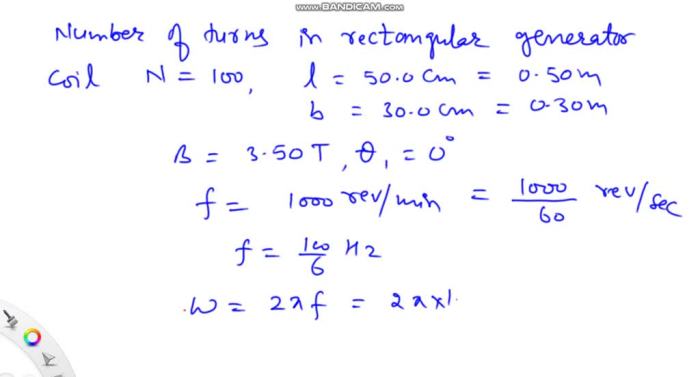 www.BANDICAM.com
Number of turns in rectangular generator
coil N = 100, l = 50.0 cm = 0.50 m
b = 30.0 cm = 0.30 m
B = 3.50 T, θ₁ = 0°
f = 1000 rev/min = 1000/60 rev/sec
f = 100/6 Hz
ω = 2πf = 2π×1